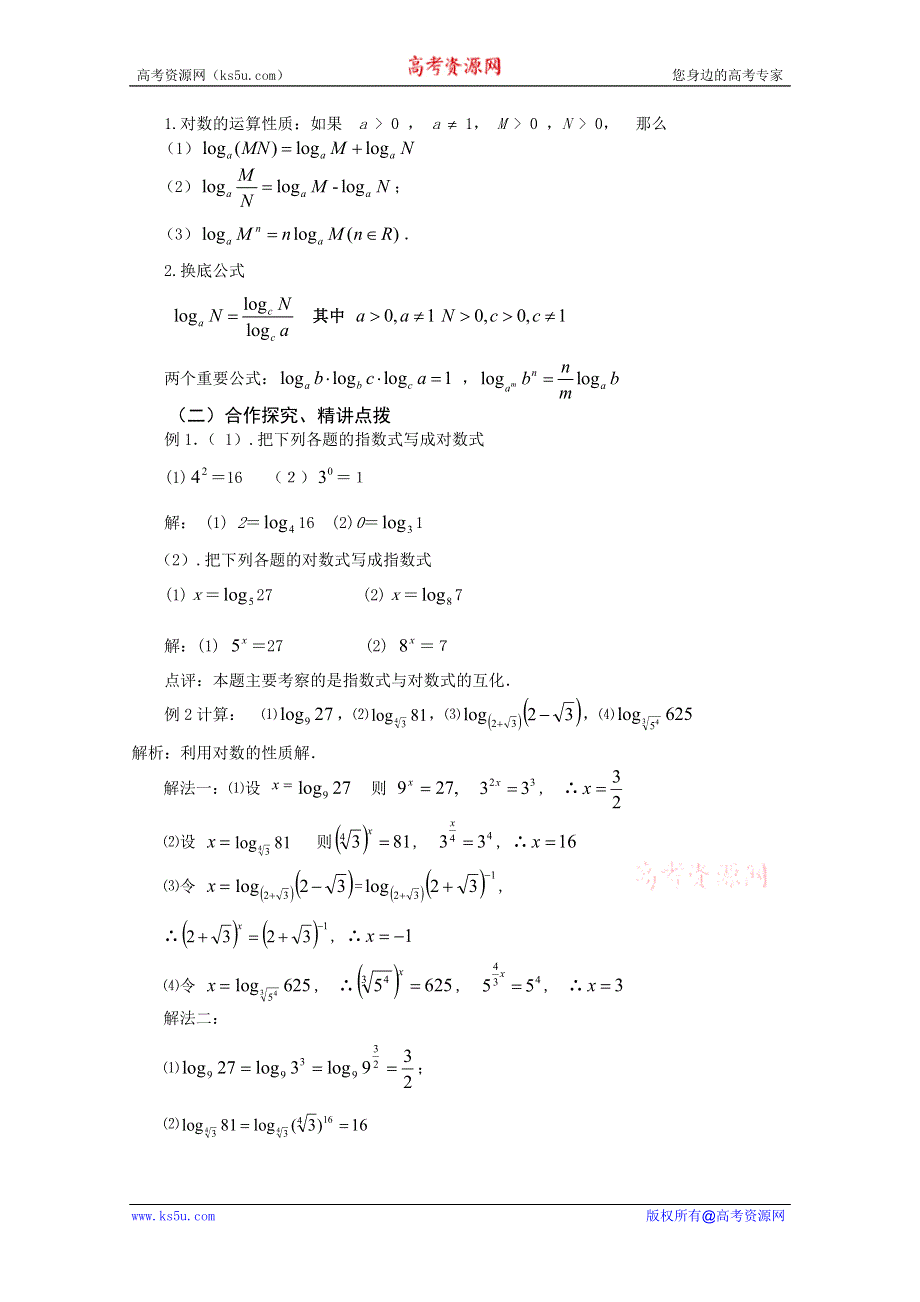 高考资源网（ks5u.com） 高考资源网 您身边的高考专家
1.对数的运算性质：如果 a > 0 ， a ≠ 1， M > 0 ，N > 0， 那么
（1）log_a(MN)=log_a M+log_a N
（2）log_a \frac{M}{N}=log_a M-log_a N；
（3）log_a M^n=nlog_a M(n∈R)．
2.换底公式
log_a N=\frac{log_c N}{log_c a} 其中 a>0,a≠1 N>0,c>0,c≠1
两个重要公式：log_a b·log_b c·log_c a=1 ，log_{a^m} b^n=\frac{n}{m}log_a b
（二）合作探究、精讲点拨
例1．（ 1）.把下列各题的指数式写成对数式
(1)4^2＝16 （２）3^0＝１
解： (1) 2＝log_4 16 (2)0＝log_3 1
（2）.把下列各题的对数式写成指数式
(1) x＝log_5 27 (2) x＝log_8 7
解：(1) 5^x＝27 (2) 8^x＝７
点评：本题主要考察的是指数式与对数式的互化．
例２计算： ⑴log_9 27，⑵log_{\sqrt[4]{3}} 81，⑶log_{(2+√3)}(2−√3)，⑷log_{\sqrt[3]{5^4}} 625
解析：利用对数的性质解．
解法一：⑴设 x=log_9 27 则 9^x=27, 3^{2x}=3^3, ∴x=\frac{3}{2}
⑵设 x=log_{\sqrt[4]{3}} 81 则(\sqrt[4]{3})^x=81, 3^{\frac{x}{4}}=3^4, ∴x=16
⑶令 x=log_{(2+√3)}(2−√3)=log_{(2+√3)}(2+√3)^{−1},
∴(2+√3)^x=(2+√3)^{−1}, ∴x=−1
⑷令 x=log_{\sqrt[3]{5^4}} 625, ∴(\sqrt[3]{5^4})^x=625, 5^{\frac{4}{3}x}=5^4, ∴x=3
解法二：
⑴log_9 27=log_9 3^3=log_9 9^{\frac{3}{2}}=\frac{3}{2}；
⑵log_{\sqrt[4]{3}} 81=log_{\sqrt[4]{3}}(\sqrt[4]{3})^{16}=16
高考资源网
www.ks5u.com 版权所有@高考资源网